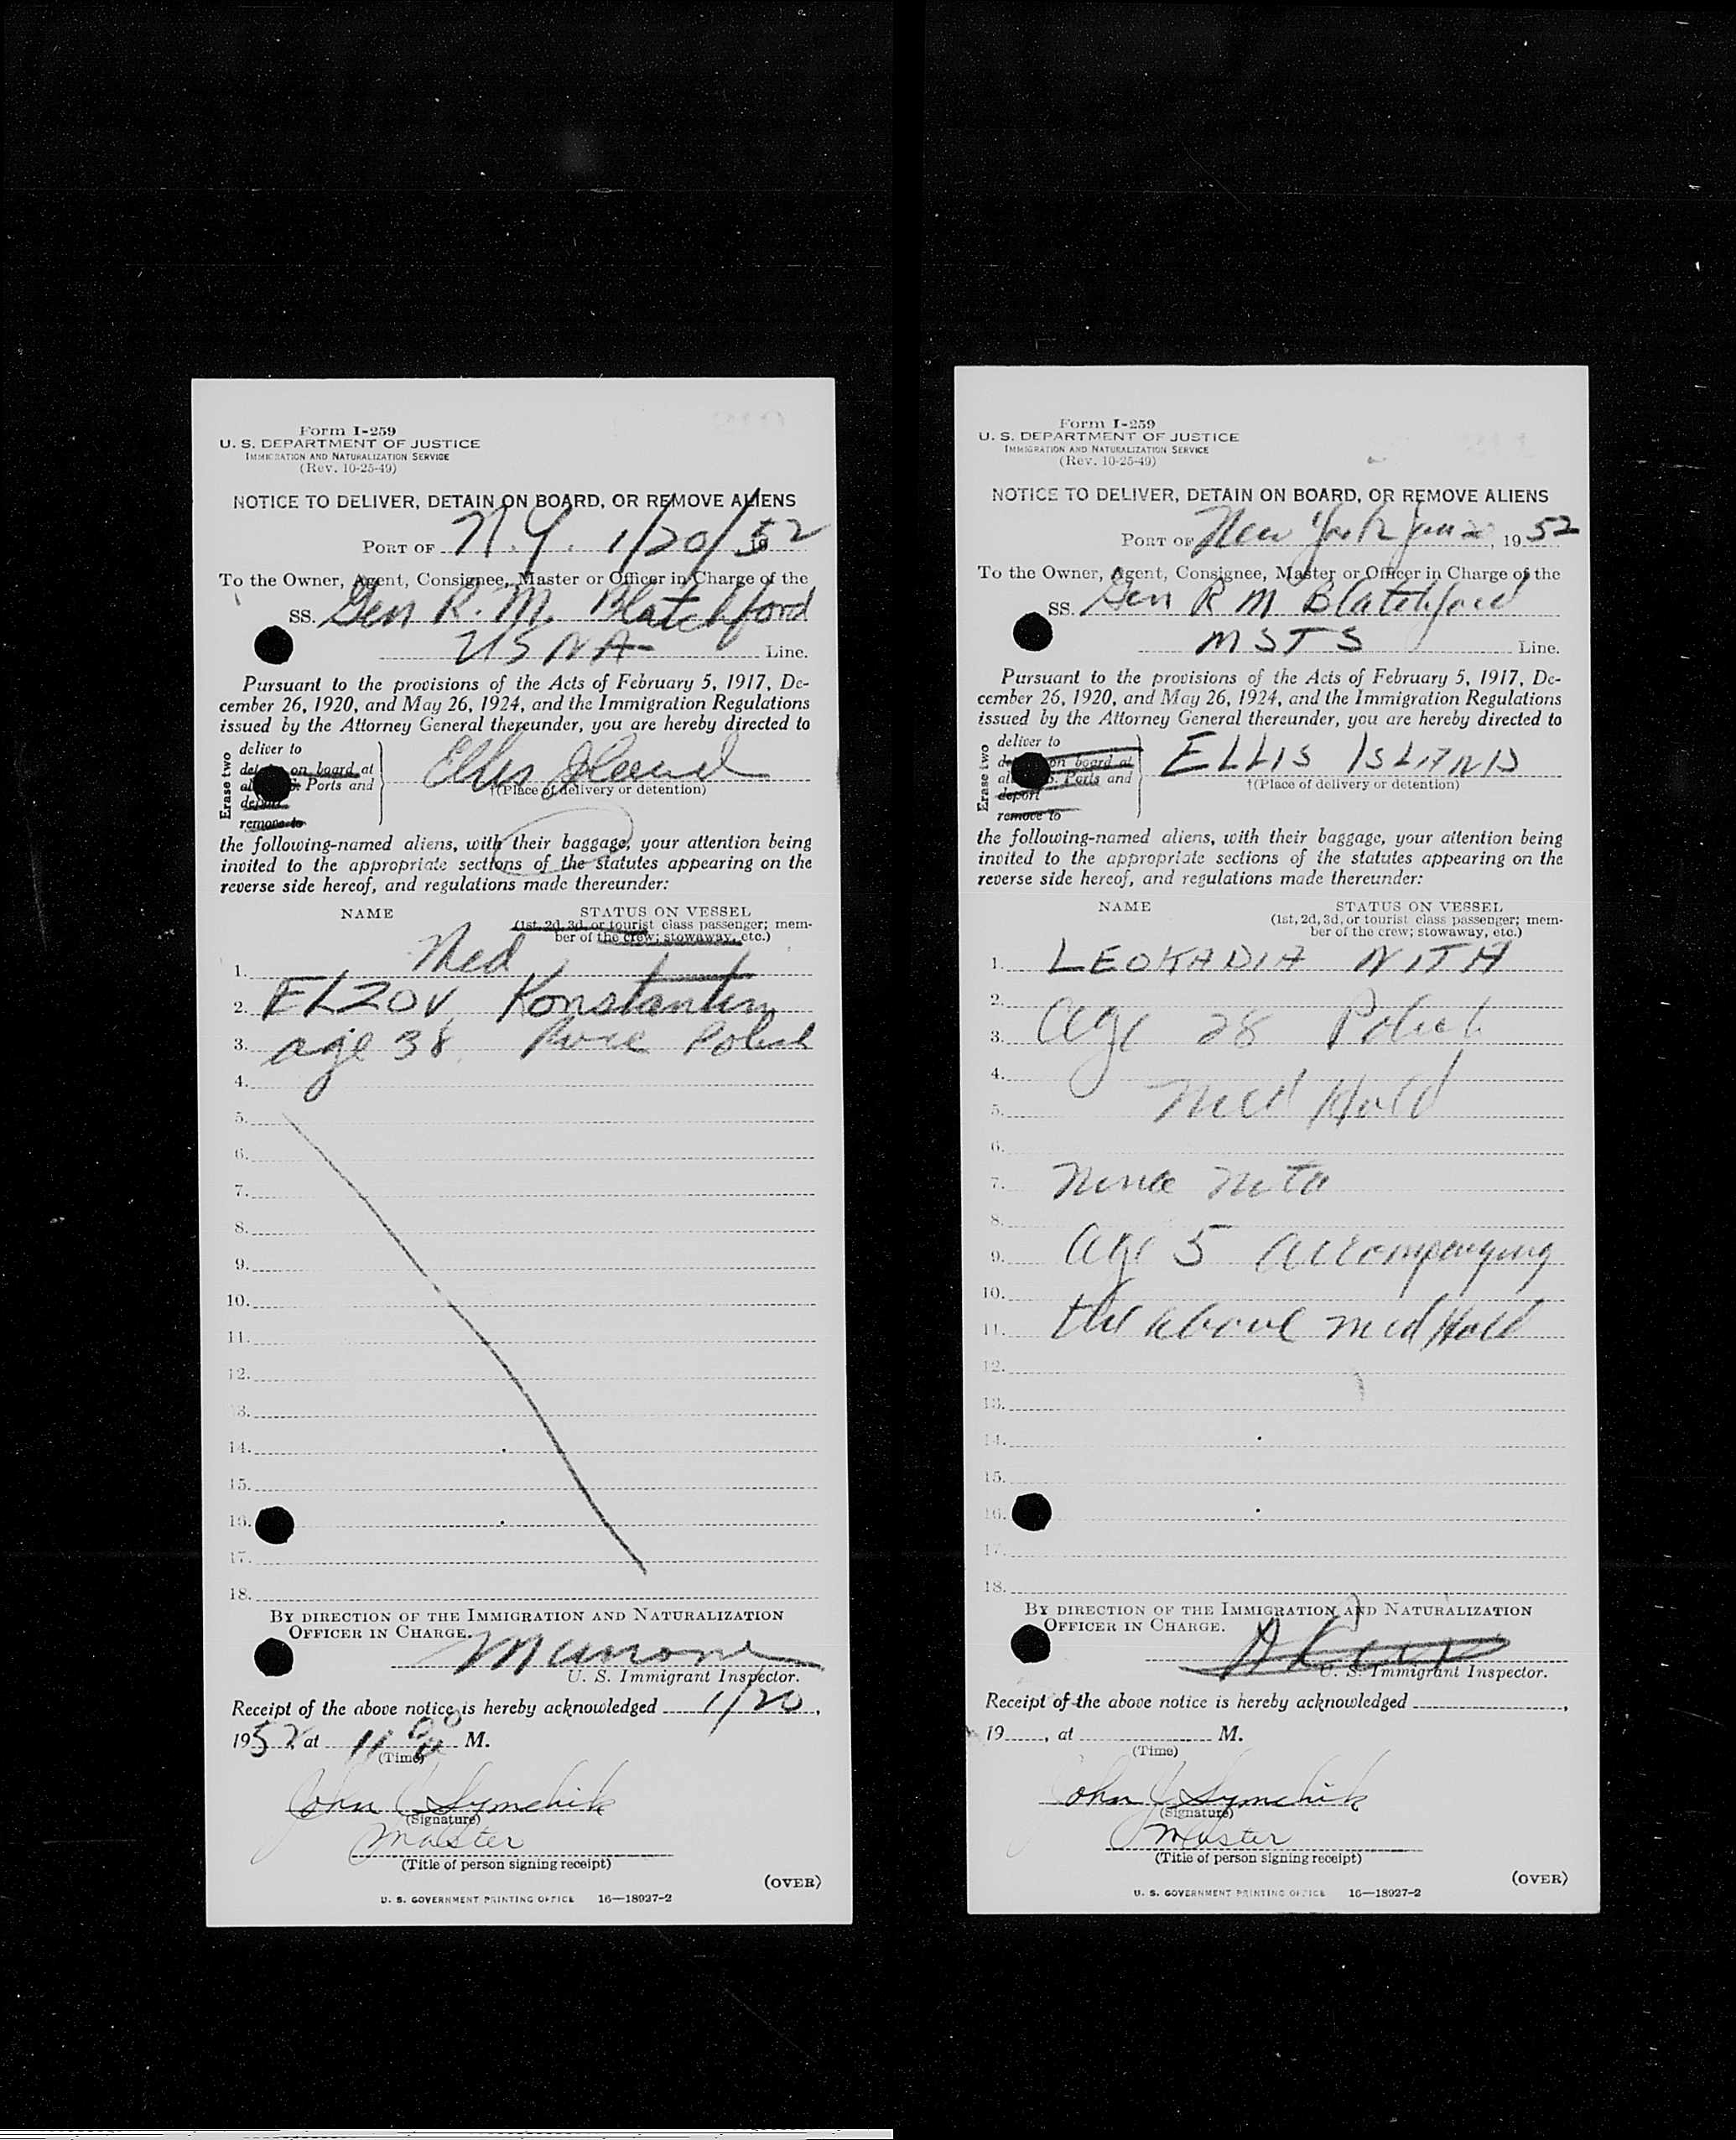 Form I-259
U. S. DEPARTMENT OF JUSTICE
IMMIGRATION AND NATURALIZATION SERVICE
(Rev. 10-25-49)
NOTICE TO DELIVER, DETAIN ON BOARD, OR REMOVE ALIENS
PORT OF N.Y. 1/20/52
19
To the Owner, Agent, Consignee, Master or Officer in Charge of the
SS. Gen R. M. Blatchford
USNA Line.
Pursuant to the provisions of the Acts of February 5, 1917, De-
cember 26, 1920, and May 26, 1924, and the Immigration Regulations
issued by the Attorney General thereunder, you are hereby directed to
Erase two
deliver to
on board at
Ports and
remove to
Ellis Island
†(Place of delivery or detention)
the following-named aliens, with their baggage, your attention being
invited to the appropriate sections of the statutes appearing on the
reverse side hereof, and regulations made thereunder:
NAME STATUS ON VESSEL
(1st, 2d, 3d, or tourist class passenger; mem-
ber of the crew; stowaway, etc.)
Med
1.
2. ELZOV Konstantin
3. age 38 Race Polish
4.
5.
6.
7.
8.
9.
10.
11.
12.
13.
14.
15.
16.
17.
18.
BY DIRECTION OF THE IMMIGRATION AND NATURALIZATION
OFFICER IN CHARGE.
U. S. Immigrant Inspector.
Receipt of the above notice is hereby acknowledged 1/20,
1952, at 11 M.
(Time)
John J Symchik
(Signature)
Master
(Title of person signing receipt)
(OVER)
U. S. GOVERNMENT PRINTING OFFICE 16—18927-2
Form I-259
U. S. DEPARTMENT OF JUSTICE
IMMIGRATION AND NATURALIZATION SERVICE
(Rev. 10-25-49)
NOTICE TO DELIVER, DETAIN ON BOARD, OR REMOVE ALIENS
PORT OF New York Jan 20, 1952
To the Owner, Agent, Consignee, Master or Officer in Charge of the
SS. Gen R M Blatchford
MSTS Line.
Pursuant to the provisions of the Acts of February 5, 1917, De-
cember 26, 1920, and May 26, 1924, and the Immigration Regulations
issued by the Attorney General thereunder, you are hereby directed to
Erase two
deliver to
on board at
Ports and
deport
remove to
ELLIS ISLAND
†(Place of delivery or detention)
the following-named aliens, with their baggage, your attention being
invited to the appropriate sections of the statutes appearing on the
reverse side hereof, and regulations made thereunder:
NAME STATUS ON VESSEL
(1st, 2d, 3d, or tourist class passenger; mem-
ber of the crew; stowaway, etc.)
1. LEOKADIA NITA
2.
3. age 28 Polish
4.
5. Med Hold
6.
7. Nina Nita
8.
9. Age 5 accompanying
10.
11. the above med Hold
12.
13.
14.
15.
16.
17.
18.
BY DIRECTION OF THE IMMIGRATION AND NATURALIZATION
OFFICER IN CHARGE.
U. S. Immigrant Inspector.
Receipt of the above notice is hereby acknowledged ,
19 , at M.
(Time)
John J Symchik
(Signature)
Master
(Title of person signing receipt)
(OVER)
U. S. GOVERNMENT PRINTING OFFICE 16—18927-2